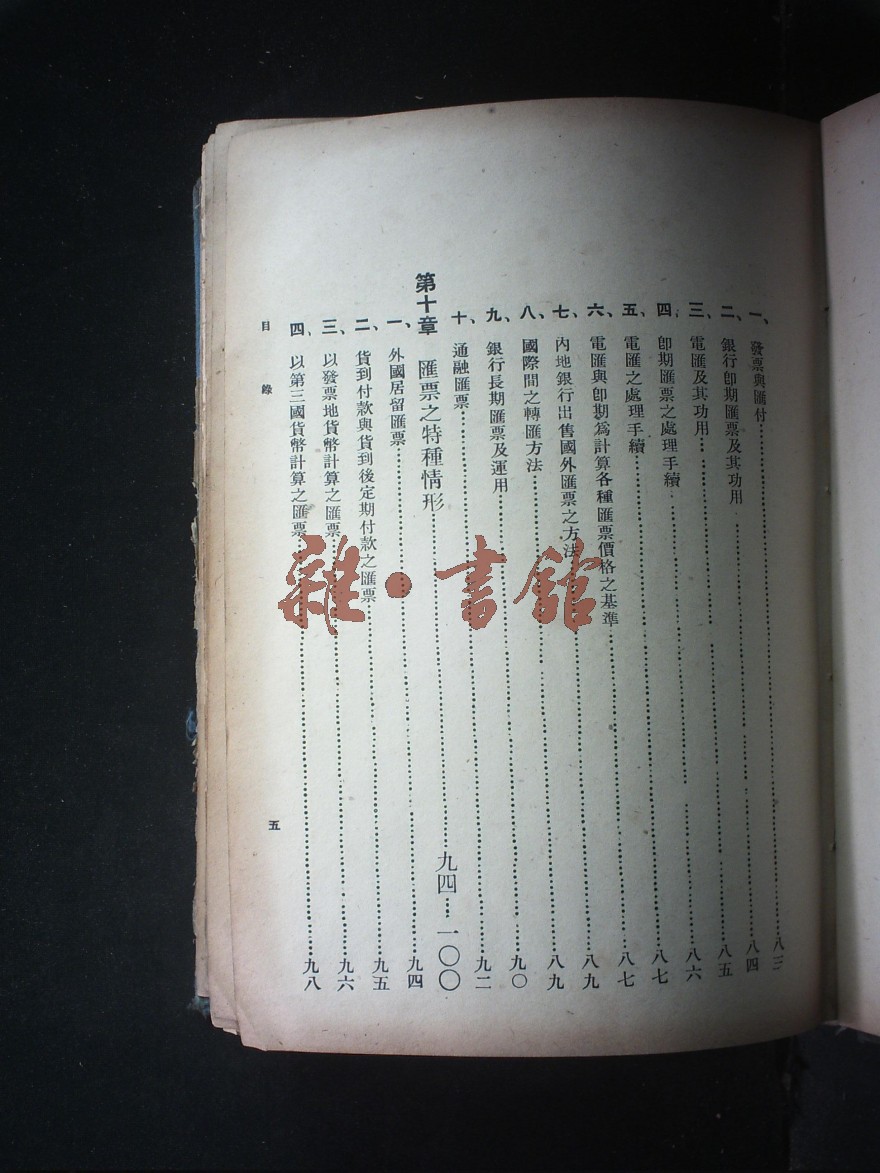 一、發票與匯付……八三
二、銀行卽期匯票及其功用……八四
三、電匯及其功用……八五
四、卽期匯票之處理手續……八六
五、電匯之處理手續……八七
六、電匯與卽期爲計算各種匯票價格之基準……八七
七、內地銀行出售國外匯票之方法……八九
八、國際間之轉匯方法……八九
九、銀行長期匯票及運用……九〇
十、通融匯票……九二
第十章 匯票之特種情形……九四—一〇〇
一、外國居留匯票……九四
二、貨到付款與貨到後定期付款之匯票……九五
三、以發票地貨幣計算之匯票……九六
四、以第三國貨幣計算之匯票……九八
目錄
五
雜·書館